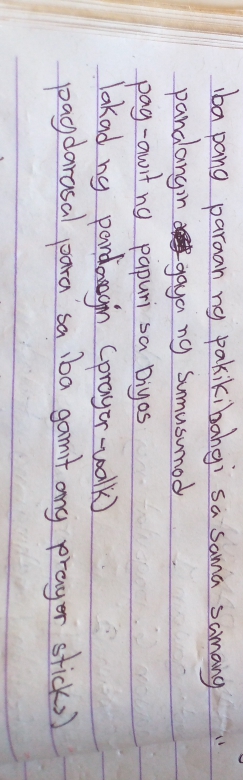 iba pang paraan ng pakikibahagi sa sama samang
pandangin gaya ng sumusunod
pag-awit ng papuri sa Diyos
lakad ng pandangin (prayer-walk)
pagdarasal para sa iba gamit ang prayer sticks)